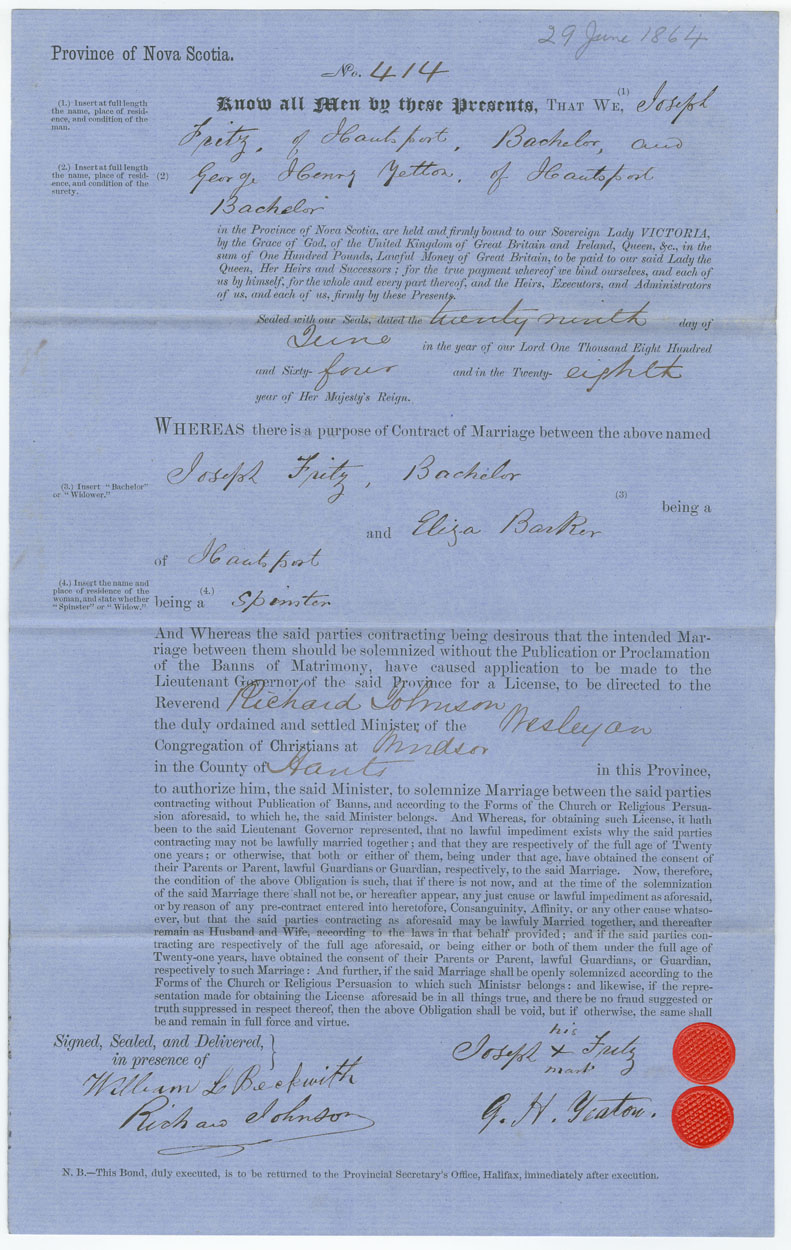 29 June 1864
Province of Nova Scotia.
No. 414
(1.) Insert at full length
the name, place of resid-
ence, and condition of the
man.
Know all Men by these Presents, THAT WE, (1) Joseph
Fritz, of Hantsport, Bachelor, and
(2.) Insert at full length
the name, place of resid-
ence, and condition of the
surety.
(2) George Henry Yetton, of Hantsport
Bachelor
in the Province of Nova Scotia, are held and firmly bound to our Sovereign Lady VICTORIA,
by the Grace of God, of the United Kingdom of Great Britain and Ireland, Queen, &c., in the
sum of One Hundred Pounds, Lawful Money of Great Britain, to be paid to our said Lady the
Queen, Her Heirs and Successors; for the true payment whereof we bind ourselves, and each of
us by himself, for the whole and every part thereof, and the Heirs, Executors, and Administrators
of us, and each of us, firmly by these Presents.
Sealed with our Seals, dated the twenty ninth day of
June in the year of our Lord One Thousand Eight Hundred
and Sixty- four and in the Twenty- eighth
year of Her Majesty's Reign.
WHEREAS there is a purpose of Contract of Marriage between the above named
Joseph Fritz, Bachelor
(3.) Insert "Bachelor"
or "Widower."
(3)
being a
and Eliza Barker
of Hantsport
(4.) Insert the name and
place of residence of the
woman, and state whether
"Spinster" or "Widow."
being a (4.) Spinster
And Whereas the said parties contracting being desirous that the intended Mar-
riage between them should be solemnized without the Publication or Proclamation
of the Banns of Matrimony, have caused application to be made to the
Lieutenant Governor of the said Province for a License, to be directed to the
Reverend Richard Johnson
the duly ordained and settled Minister of the Wesleyan
Congregation of Christians at Windsor
in the County of Hants in this Province,
to authorize him, the said Minister, to solemnize Marriage between the said parties
contracting without Publication of Banns, and according to the Forms of the Church or Religious Persua-
sion aforesaid, to which he, the said Minister belongs. And Whereas, for obtaining such License, it hath
been to the said Lieutenant Governor represented, that no lawful impediment exists why the said parties
contracting may not be lawfully married together; and that they are respectively of the full age of Twenty
one years; or otherwise, that both or either of them, being under that age, have obtained the consent of
their Parents or Parent, lawful Guardians or Guardian, respectively, to the said Marriage. Now, therefore,
the condition of the above Obligation is such, that if there is not now, and at the time of the solemnization
of the said Marriage there shall not be, or hereafter appear, any just cause or lawful impediment as aforesaid,
or by reason of any pre-contract entered into heretofore, Consanguinity, Affinity, or any other cause whatso-
ever, but that the said parties contracting as aforesaid may be lawfuly Married together, and thereafter
remain as Husband and Wife, according to the laws in that behalf provided; and if the said parties con-
tracting are respectively of the full age aforesaid, or being either or both of them under the full age of
Twenty-one years, have obtained the consent of their Parents or Parent, lawful Guardians, or Guardian,
respectively to such Marriage: And further, if the said Marriage shall be openly solemnized according to the
Forms of the Church or Religious Persuasion to which such Ministsr belongs: and likewise, if the repre-
sentation made for obtaining the License aforesaid be in all things true, and there be no fraud suggested or
truth suppressed in respect thereof, then the above Obligation shall be void, but if otherwise, the same shall
be and remain in full force and virtue.
Signed, Sealed, and Delivered,
in presence of
William L Beckwith
Richard Johnson
his
Joseph x Fritz
mark
G. H. Yeaton.
N. B.—This Bond, duly executed, is to be returned to the Provincial Secretary's Office, Halifax, immediately after execution.